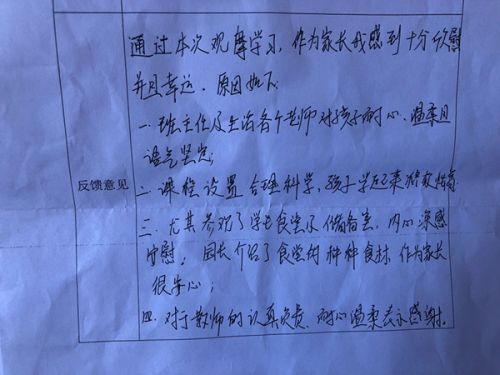 通过本次观摩学习，作为家长我感到十分欣慰
并且幸运。原因如下：
一、班主任及生活各个老师对孩子耐心、温柔且
语气坚定；
反馈意见
二、课程设置合理科学，孩子学起来
三、尤其参观了学校食堂及储备室，内心深感
欣慰，园长介绍了食堂的种种食材，作为家长
很安心；
四、对于教师的认真负责、耐心温柔表示感谢。